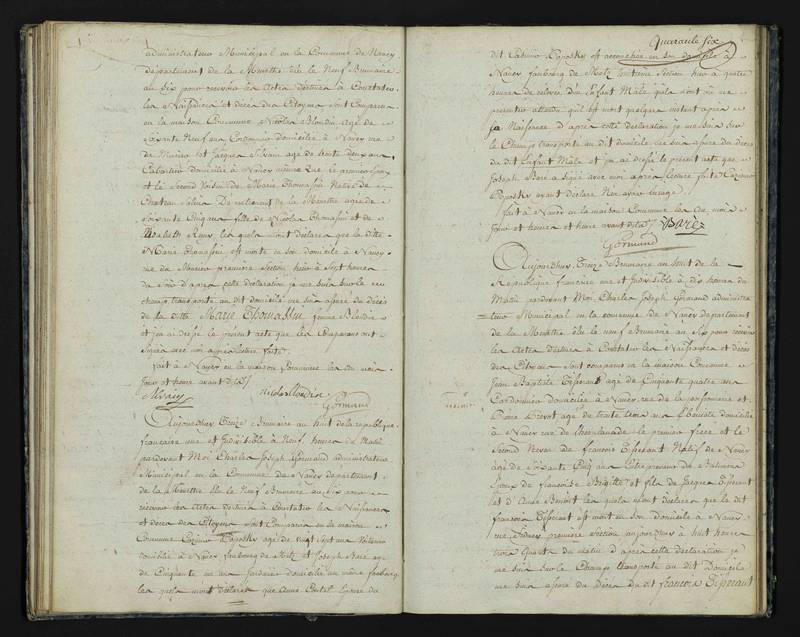 administrateur Municipal en la Commune de Nancy
département de la Meurthe élu le Neuf Brumaire
an six pour recevoir les Actes destinés à Constater
les Naissances et décès des Citoyens sont Comparus
en la maison Commune Nicolas Blondin agé de
soixante Neuf ans domicilié à Nancy rue
de et Jacques agé de trente deux ans
Cabaretier domicilié à Nancy même rue le premier Epoux
et le Second Voisin de Marie Thomassin Native de
Chateau Salins Département de la Meurthe agée de
soixante Cinq ans fille de Nicolas Thomassin et de
Elisabeth lesquels m'ont déclaré que la ditte
Marie Thomassin est morte en son domicile à Nancy
rue de première Section hier à Sept heures
du soir d'après cette déclaration je me suis sur le
champ transporté au dit domicile me suis assuré du décès
de la ditte Marie Thomassin femme Blondin
et j'en ai dressé le présent acte que les Comparans ont
signés avec moi après lecture faite.
fait à Nancy en la maison Commune les an mois
jour et heure avant dits
nicolas blondin
Gormand
Aujourdhuy Treize Brumaire an huit de la republique
francaise une et Indivisible à Neuf heures du Matin
pardevant Moi Charles Joseph Gormand administrateur
Municipal en la Commune de Nancy departement
de la Meurthe élu le Neuf Brumaire an Six pour
recevoir les Actes destinés à Constater les Naissances
et décès des Citoyens sont Comparus en la maison
Commune Casimir Poposky agé de vingt Sept ans
domicilié à Nancy faubourg de Metz et Joseph Baré agé
de Cinquante un ans Jardinier domicilié au même faubourg
lesquels m'ont déclaré que Anne Epouse du
Quarante Six
dit Casimir Poposky est accouchée en son domicile à
Nancy faubourg de Metz Section hier à quatre
heures de relevée d'un Enfant Mâle qu'ils n'ont pu me
présenter attendu qu'il est mort quelques instans après
sa Naissance d'après cette déclaration je me suis sur
le Champ transporté au dit domicile me suis assuré du décès
du dit Enfant Mâle et j'en ai dressé le présent acte que
Joseph Baré a signé avec moi après lecture faite Casimir
Poposky ayant déclaré Non avoir l'usage
fait à Nancy en la maison Commune les an mois
jour et heure avant dits Barez
Gormand
Aujourdhuy Treize Brumaire an huit de la
Republique francaise une et Indivisible à dix heures du
Matin pardevant Moi Charles Joseph Gormand administra
teur Municipal en la commune de Nancy departement
de la Meurthe élu le neuf Brumaire an Six pour recevoir
les Actes destinés à Constater les Naissances et décès
des Citoyens sont comparus en la maison Commune
Jean Baptiste agé de Cinquante quatre ans
Cordonnier domicilié à Nancy rue de la poissonnerie et
agé de trente trois ans Ebéniste domicilié
à Nancy rue de l'Esplanade le premier frere et le
Second Neveu de francois Natif de Nancy
agé de soixante Cinq ans Entrepreneur de Batimens
Epoux de francoise Brigitte et fils de Jacques
et d'Anne Benoit lesquels m'ont déclaré que le dit
francois est mort en son domicile à Nancy
rue première Section aujourdhuy à huit heures
trois Quarts du matin d'après cette déclaration je
me suis sur le Champ transporté au dit Domicile
me suis assuré du Décès du dit francois